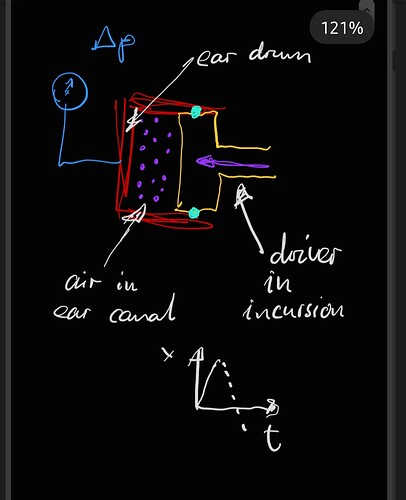 121%
Δp
ear drum
air in
ear canal
driver
in
incursion
x
t